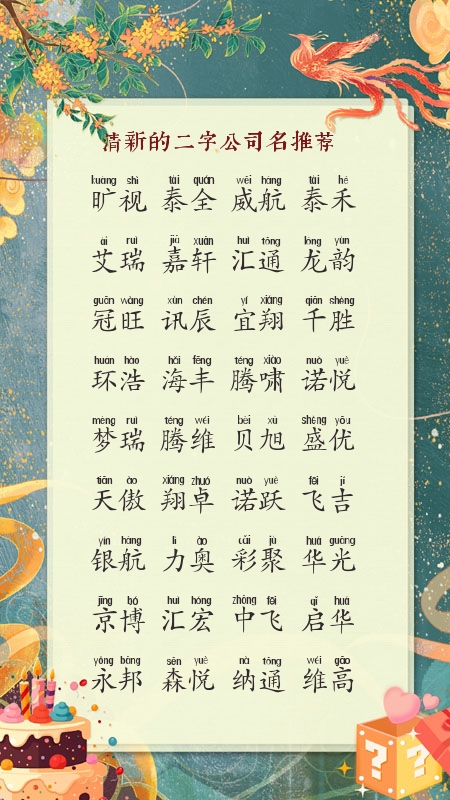 清新的二字公司名推荐
kuàng shì tài quán wēi háng tài hé
旷视 泰全 威航 泰禾
ài ruì jiā xuān huì tōng lóng yùn
艾瑞 嘉轩 汇通 龙韵
guān wàng xùn chén yí xiáng qiān shèng
冠旺 讯辰 宜翔 千胜
huán hào hǎi fēng téng xiào nuò yuè
环浩 海丰 腾啸 诺悦
mèng ruì téng wéi bèi xù shèng yōu
梦瑞 腾维 贝旭 盛优
tiān ào xiáng zhuó nuò yuè fēi jí
天傲 翔卓 诺跃 飞吉
yín háng lì ào cǎi jù huá guāng
银航 力奥 彩聚 华光
jīng bó huì hóng zhōng fēi qǐ huá
京博 汇宏 中飞 启华
yǒng bāng sēn yuè nà tōng wéi gāo
永邦 森悦 纳通 维高
? ?